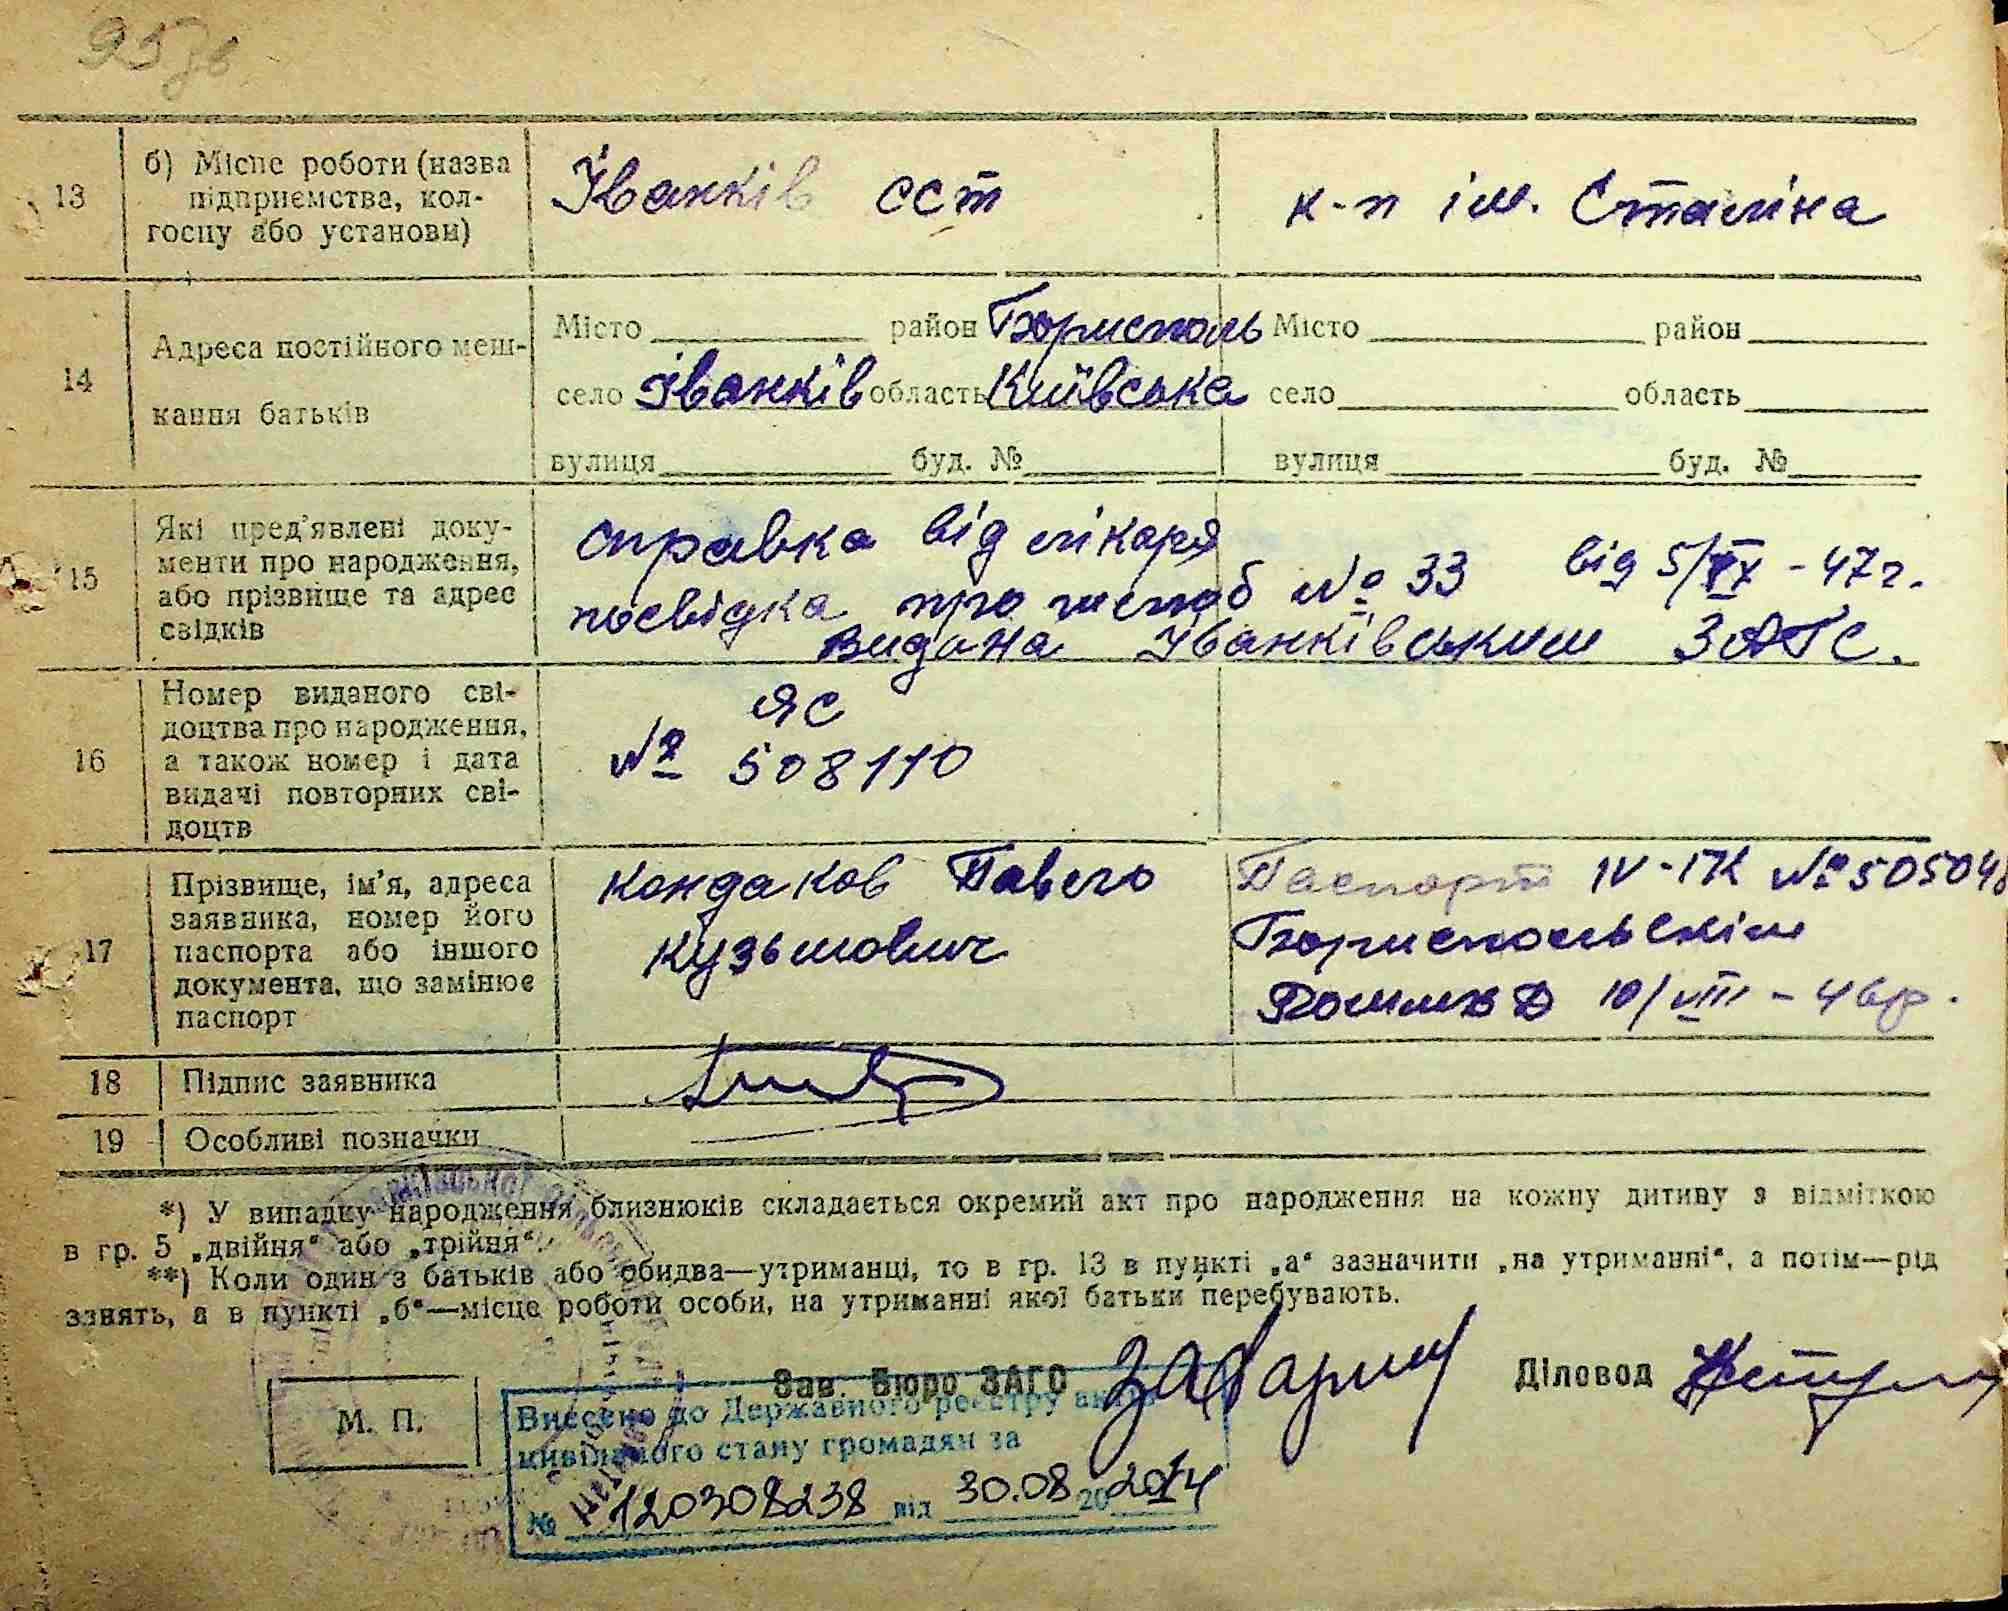 95 зв
13
б) Місце роботи (назва
підприємства, кол-
госпу або установи)
Іванків ССТ
к-п ім. Сталіна
14
Адреса постійного меш-
кання батьків
Місто район Бориспoль
село Іванків область Київська
вулиця буд. №
Місто район
село область
вулиця буд. №
15
Які пред'явлені доку-
менти про народження,
або прізвище та адрес
свідків
справка від лікаря
посвідка про шлюб № 33 від 5/IX - 47 г.
Видана Іванківським ЗАГС.
16
Номер виданого сві-
доцтва про народження,
а також номер і дата
видачі повторних сві-
доцтв
ЯС
№ 508110
17
Прізвище, ім'я, адреса
заявника, номер його
паспорта або іншого
документа, що замінює
паспорт
Кондаков Павло
Кузьмович
Паспорт IV-ПК № 505048
Бориспольскім
10/VIII - 46р.
18
Підпис заявника
19
Особливі позначки
*) У випадку народження близнюків складається окремий акт про народження на кожну дитину з відміткою
в гр. 5 „двійня" або „трійня".
**) Коли один з батьків або обидва—утриманці, то в гр. 13 в пункті „а" зазначити „на утриманні", а потім—рід
занять, а в пункті „б"—місце роботи особи, на утриманні якої батьки перебувають.
Зав. Бюро ЗАГС
Діловод
М. П.
Внесено до Державного реєстру актів
цивільного стану громадян за
№ 120308238 від 30.08 20 2014